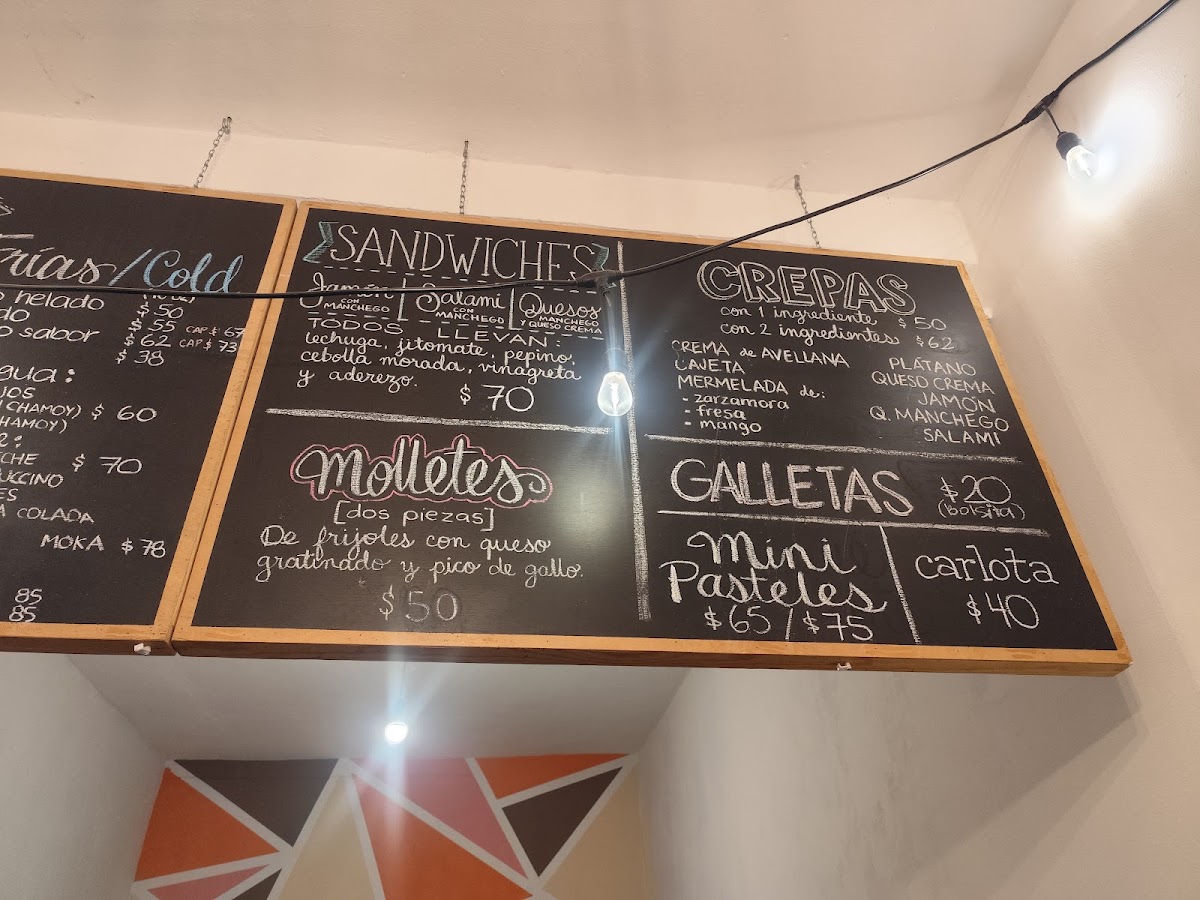 Frías/Cold
helado
$50
$55 CAP. $ 67
sabor
$62 CAP $ 73
$38
$ 60
CHAMOY)
$ 70
COLADA
MOKA $78
85
85
SANDWICHES
Jamón
CON
MANCHEGO
Salami
CON
MANCHEGO
Quesos
MANCHEGO
Y QUESO CREMA
TODOS LLEVAN:
lechuga, jitomate, pepino,
cebolla morada, vinagreta
y aderezo.
$ 70
Molletes
[dos piezas]
De frijoles con queso
gratinado y pico de gallo.
$50
CREPAS
con 1 ingrediente $ 50
con 2 ingredientes $62
CREMA de AVELLANA
CAJETA
MERMELADA de:
- zarzamora
- fresa
- mango
PLÁTANO
QUESO CREMA
JAMÓN
Q. MANCHEGO
SALAMI
GALLETAS $20
(Bolsita)
Mini
Pasteles
$65/$75
carlota
$40